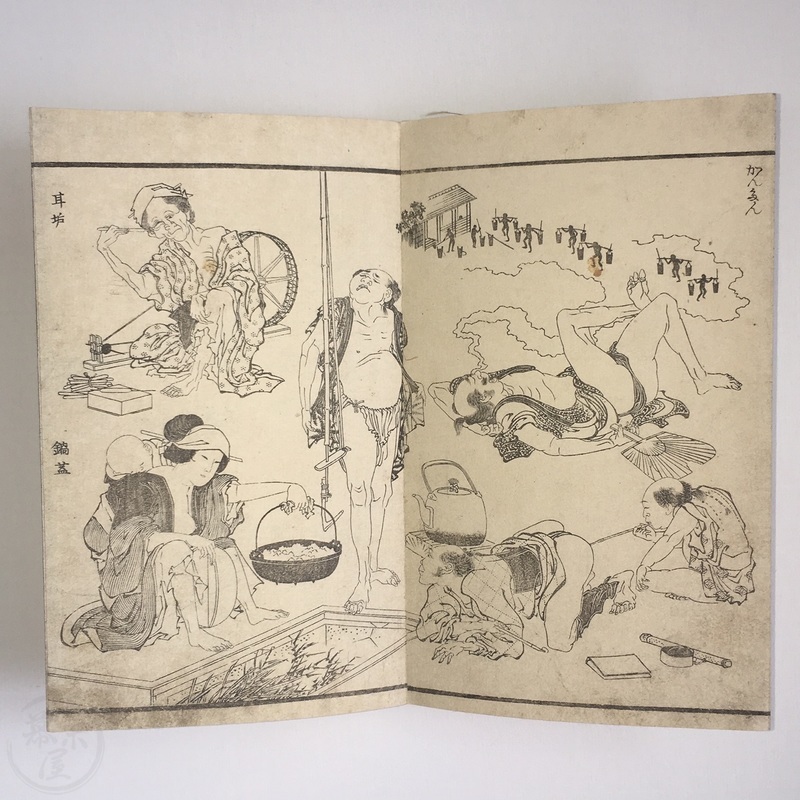 かんたん
耳垢
鍋蓋
屋